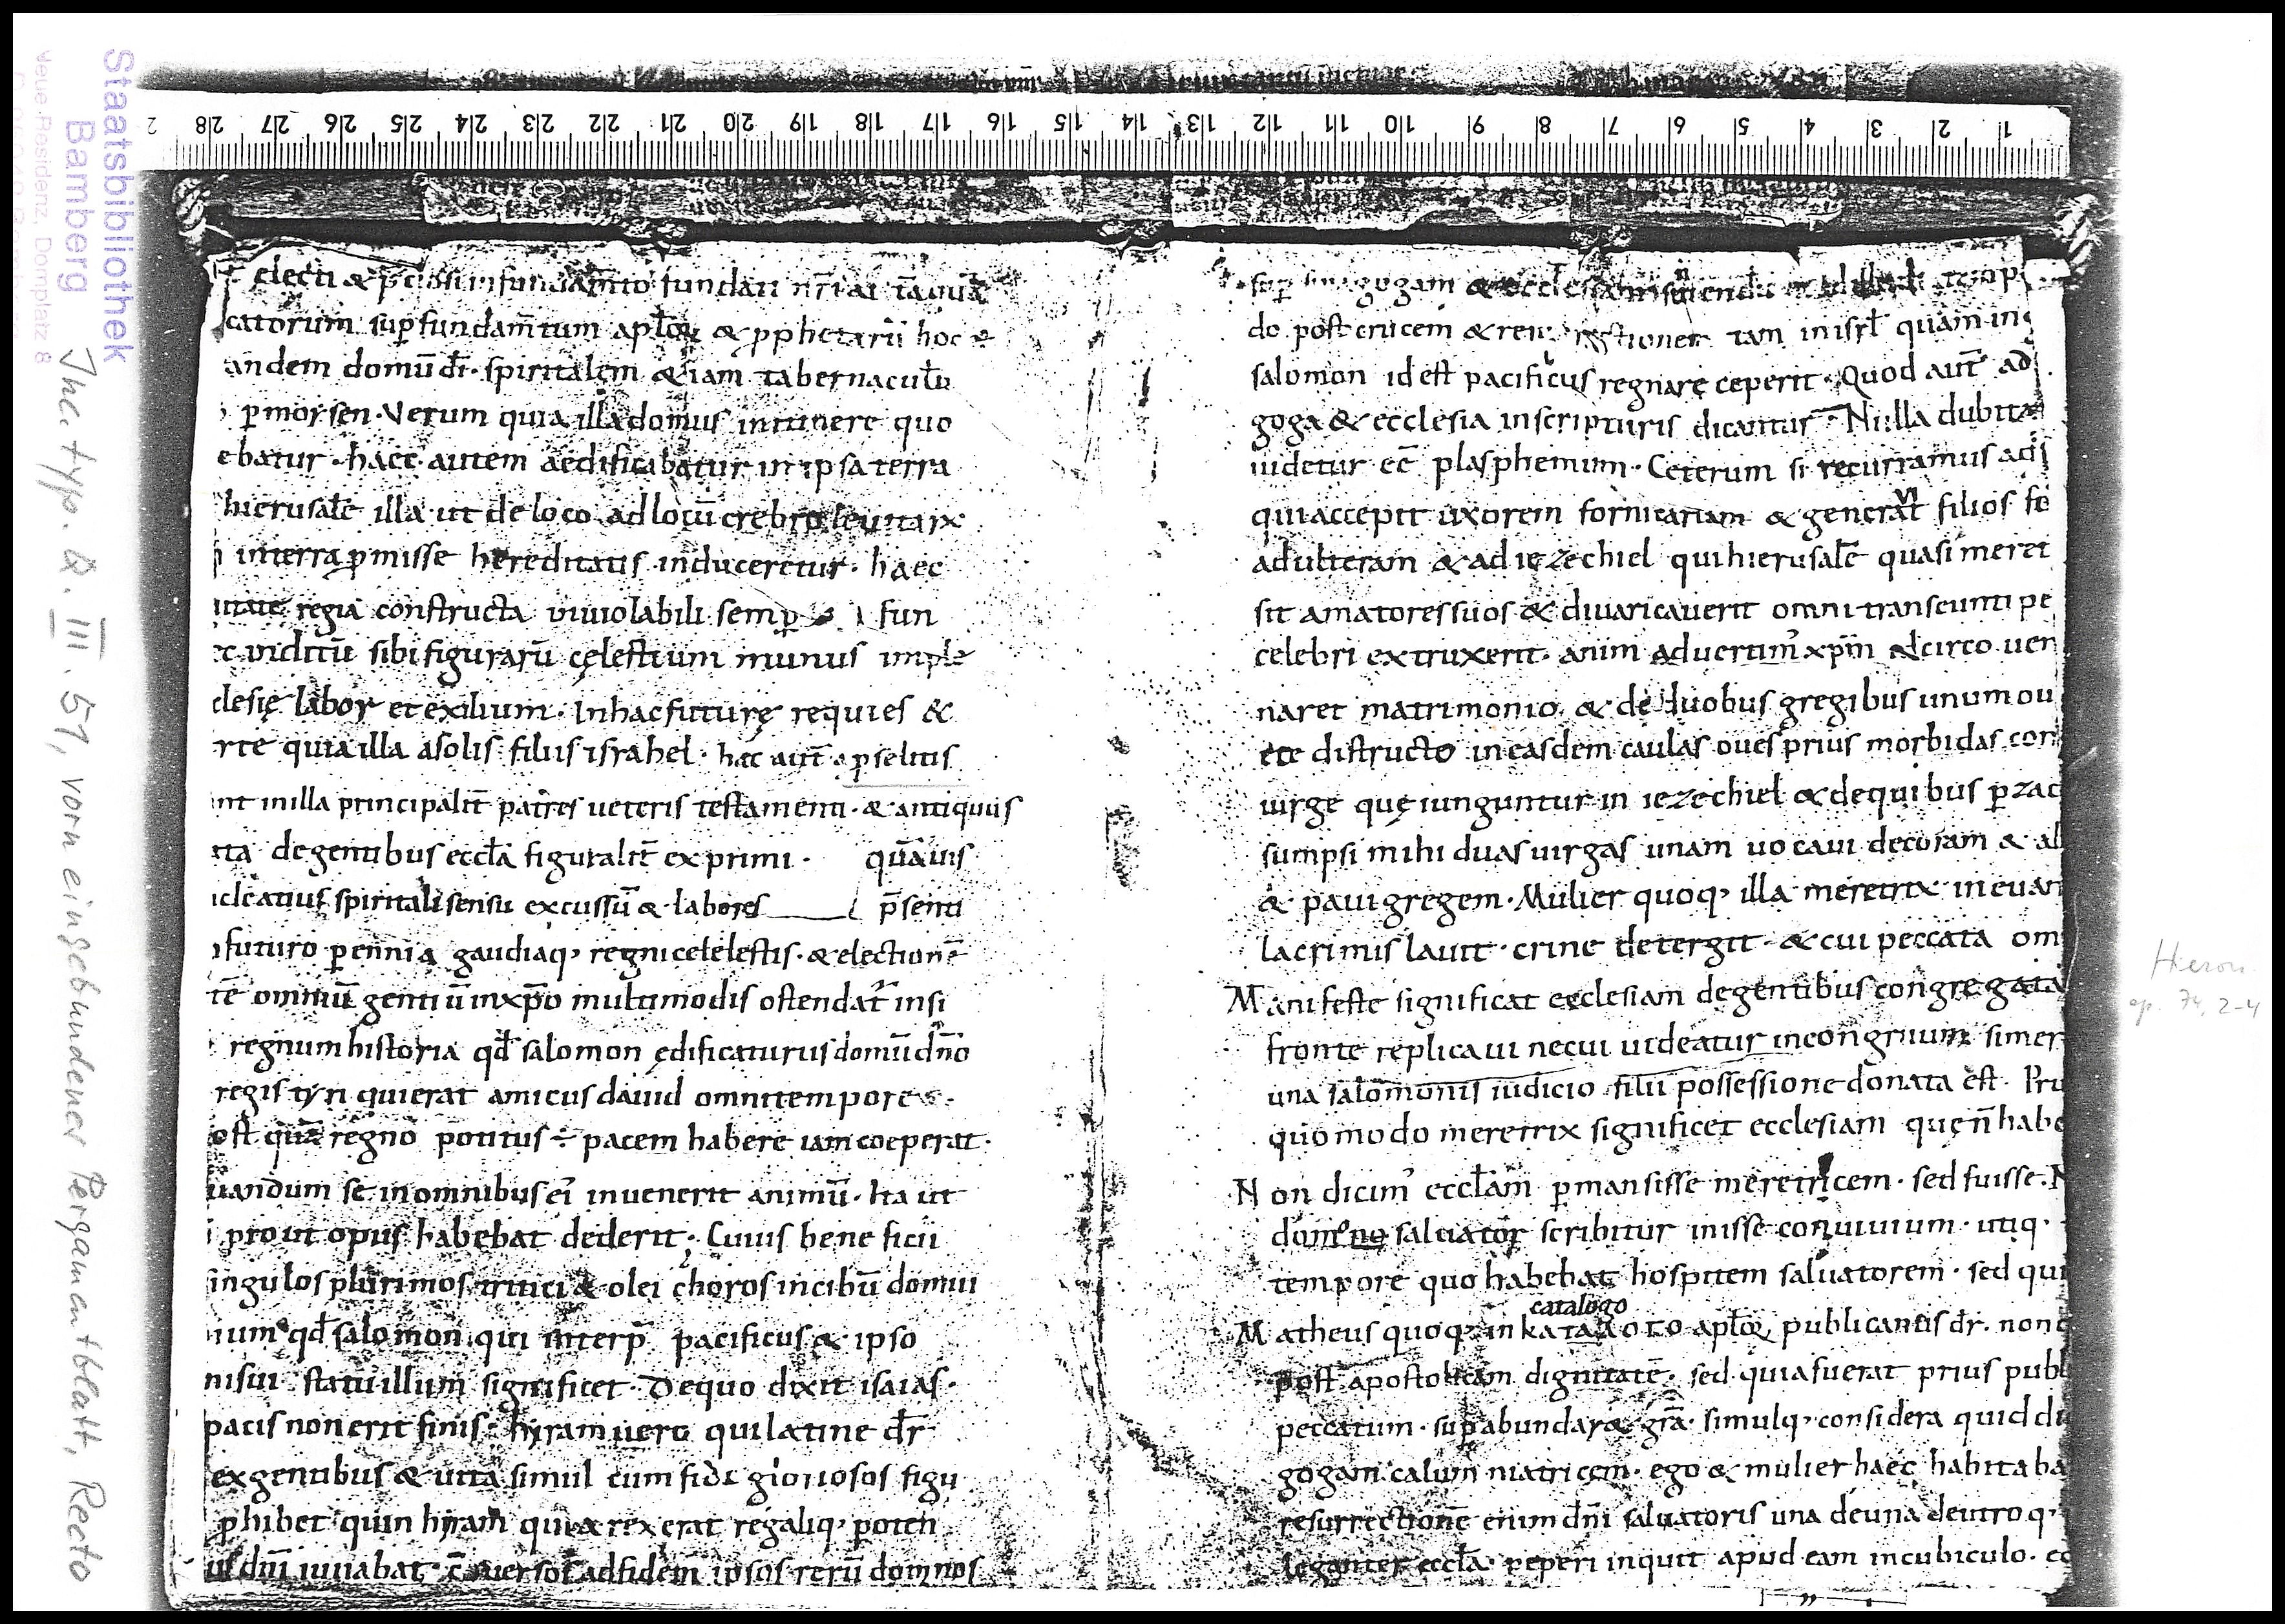 Staatsbibliothek
Bamberg
Neue Residenz, Domplatz 8
Inc. typ. Q. III. 51, vorn eingebundener Pergamentblatt, Recto
28 27 26 25 24 23 22 21 20 19 18 17 16 15 14 13 12 11 10 9 8 7 6 5 4 3 2 1
electi &
catorum sup̄ fundam̄tum apl̄oꝝ & pphetarū hoc ē
andem domū dī· spiritalem &iam tabernaculū
p̄ moysen· Verum quia illa domus initinere quo
ebatur· haec autem aedificabatur in ipsa terra
hierusalē illa ut de loco ad locū crebro
interra p̄misse hereditatis induceretur· haec
regia constructa inuiolabili semp̄ fun
sibi figurarū cęlestium munus imple
clesię labor et exilium· In hac futurę requies &
rte quia illa a solis filiis israhel· hęc aut̄ a pselitis
nt in illa principalit̄ patres ueteris testamenti· & antiquus
ita de gentibus eccl̄a figuralit̄ exprimi· quāuis
spiritali sensu excussū & labores p̄senti
futuro p̄ennia gaudiaq; regni celelestis· & electionē
tē omniū gentiū in xp̄o multimodis ostendat̄ insi
regnum historia qđ salomon ędificaturus domū dn̄o
regis tyri qui erat amicus dauid omni tempore·
ost quā regno potitus ÷ pacem habere iam coeperat·
uandum se in omnibus ei inuenerit animū· Ita ut
prout opus habebat dederit· Cuius beneficii
ingulos plurimos tritici & olei choros in cibū domui
ium qđ salomon qui interp̄ pacificus & ipso
nisui statū illum significet· De quo dixit isaias·
pacis non erit finis· hyram uero qui latine dr̄
ex gentibus & uita simul cum fide gloriosos figu
phibet quin hyram quia rex erat regaliq; poten
us dn̄i iuuabat· cōuersos ad fidem ipsos rerū domnos
sup̄ sinagogam & ecclesiam
do post crucem & tam in isrl̄ quam in
salomon id est pacificus regnare ceperit· Quod aut̄ ad
goga & ecclesia in scripturis dicantur· Nulla dubita
uidetur eē plasphemium· Ceterum si recurramus ad
qui accepit uxorem fornicariam & generat filios fo
ui
adulteram & ad iezechiel qui hierusalē quasi meret
sit amatores suos & diuaricauerit omni transeunti pe
celebri extruxerit· anim aduertim' xp̄m idcirco uen
naret matrimonio & de duobus gregibus unum ou
ete distructo in easdem caulas oues prius morbidas con
uirgę quę iunguntur in iezechiel & de quibus p̄ zac
sumpsi mihi duas uirgas unam uocaui decoram & al
& paui gregem· Mulier quoq; illa meretrix in euan
lacrimis lauit· crine detergit· & cui peccata om
Manifeste significat ecclesiam de gentibus congregatā
fronte replicaui necui uideatur incongruum si mer
una salomonis iudicio filii possessione donata est· Pru
quomodo meretrix significet ecclesiam quę n̄ habe
Non dicim' eccl̄am p̄mansisse meretricem· sed fuisse·
saluator scribitur inisse conuiuium· utiq·
tempore quo habebat hospitem saluatorem· sed qui
catalogo
Matheus quoq; in apl̄oꝝ publicanus dr̄· non
post apostolicam dignitatē· sed quia fuerat prius publ
peccatum· sup̄abundaret gr̄a· simulq; considera quid di
gogam calum niatricem· ego & mulier haec habita ba
resurrectionē enim dn̄i saluatoris una de una deutro q;
leganter eccl̄a· peperi inquit apud eam in cubiculo·
Hieron.
ep. 74, 2-4